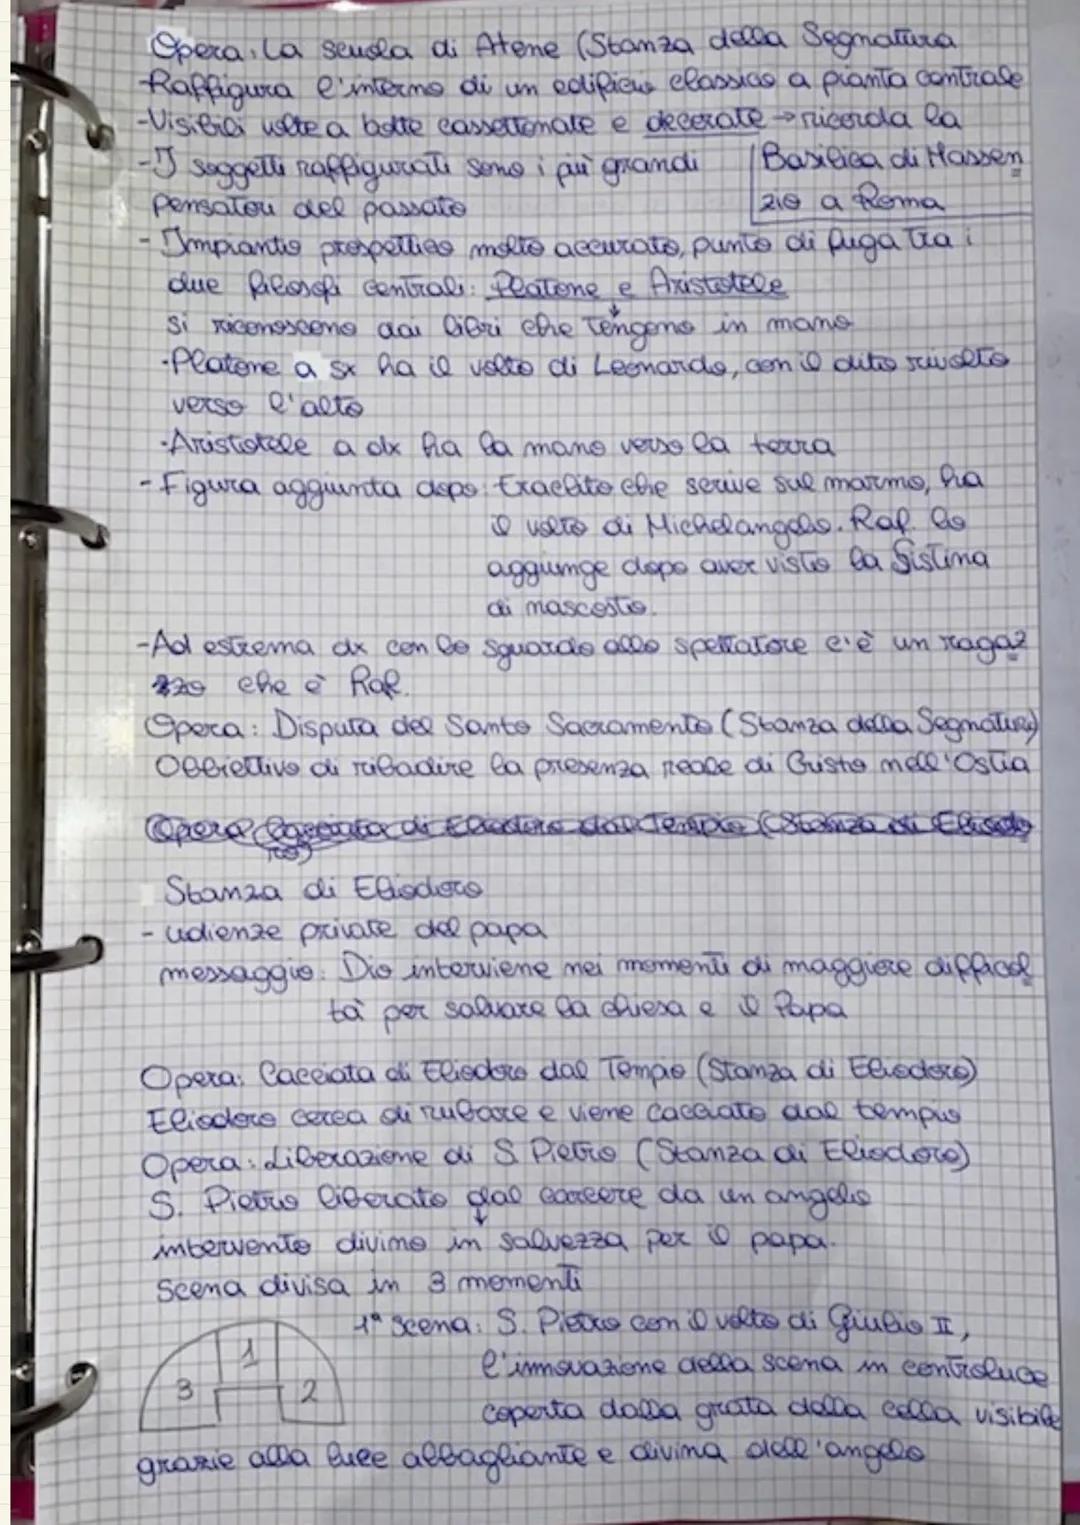 Opera: La scuola di Atene (Stanza della Segnatura
-Raffigura l'interno di un edificio classico a pianta centrale
-Visibili volte a botte cassettonate e decorate → ricorda la
Basilica di Massen
zio a Roma
-I soggetti raffigurati sono i più grandi
pensatori del passato
- Impianto prospettico molto accurato, punto di fuga tra i
due filosofi centrali: Platone e Aristotele
si riconoscono dai libri che tengono in mano
·Platone a sx ha il volto di Leonardo, con il dito rivolto
verso l'alto
·Aristotele a dx ha la mano verso la terra
- Figura aggiunta dopo: Eraclito che scrive sul marmo, ha
il volto di Michelangelo. Raf. lo
aggiunge dopo aver visto la Sistina
di nascosto.
-Ad estrema dx con lo sguardo allo spettatore c'è un ragaz
zo che è Raf.
Opera: Disputa del Santo Sacramento (Stanza della Segnatura)
Obbiettivo di ribadire la presenza reale di Cristo nell'Ostia
Opera Cacciata di Eliodoro dal Tempio (Stanza di Eliodo
ro)
Stanza di Eliodoro
- udienze private del papa
messaggio: Dio interviene nei momenti di maggiore difficol
tà per salvare la chiesa e il Papa
Opera: Cacciata di Eliodoro dal Tempio (Stanza di Eliodoro)
Eliodoro cerca di rubare e viene cacciato dal tempio
Opera: Liberazione di S. Pietro (Stanza di Eliodoro)
S. Pietro liberato dal carcere da un angelo
↓
intervento divino in salvezza per il papa.
Scena divisa in 3 momenti
1ª scena: S. Pietro con il volto di Giulio II,
l'innovazione della scena in controluce
1
3 2
coperta dalla grata della cella visibile
grazie alla luce abbagliante e divina dell'angelo